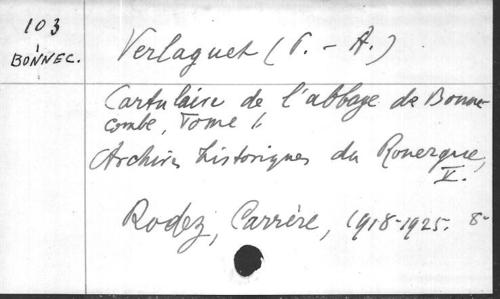 103
BONNEC.
Verlaguet (P. - A.)
Cartulaire de l'abbaye de Bonne-
combe, Tome I,
Archives historiques du Rouergue,
V.
Rodez, Carrère, 1918-1925. 8°